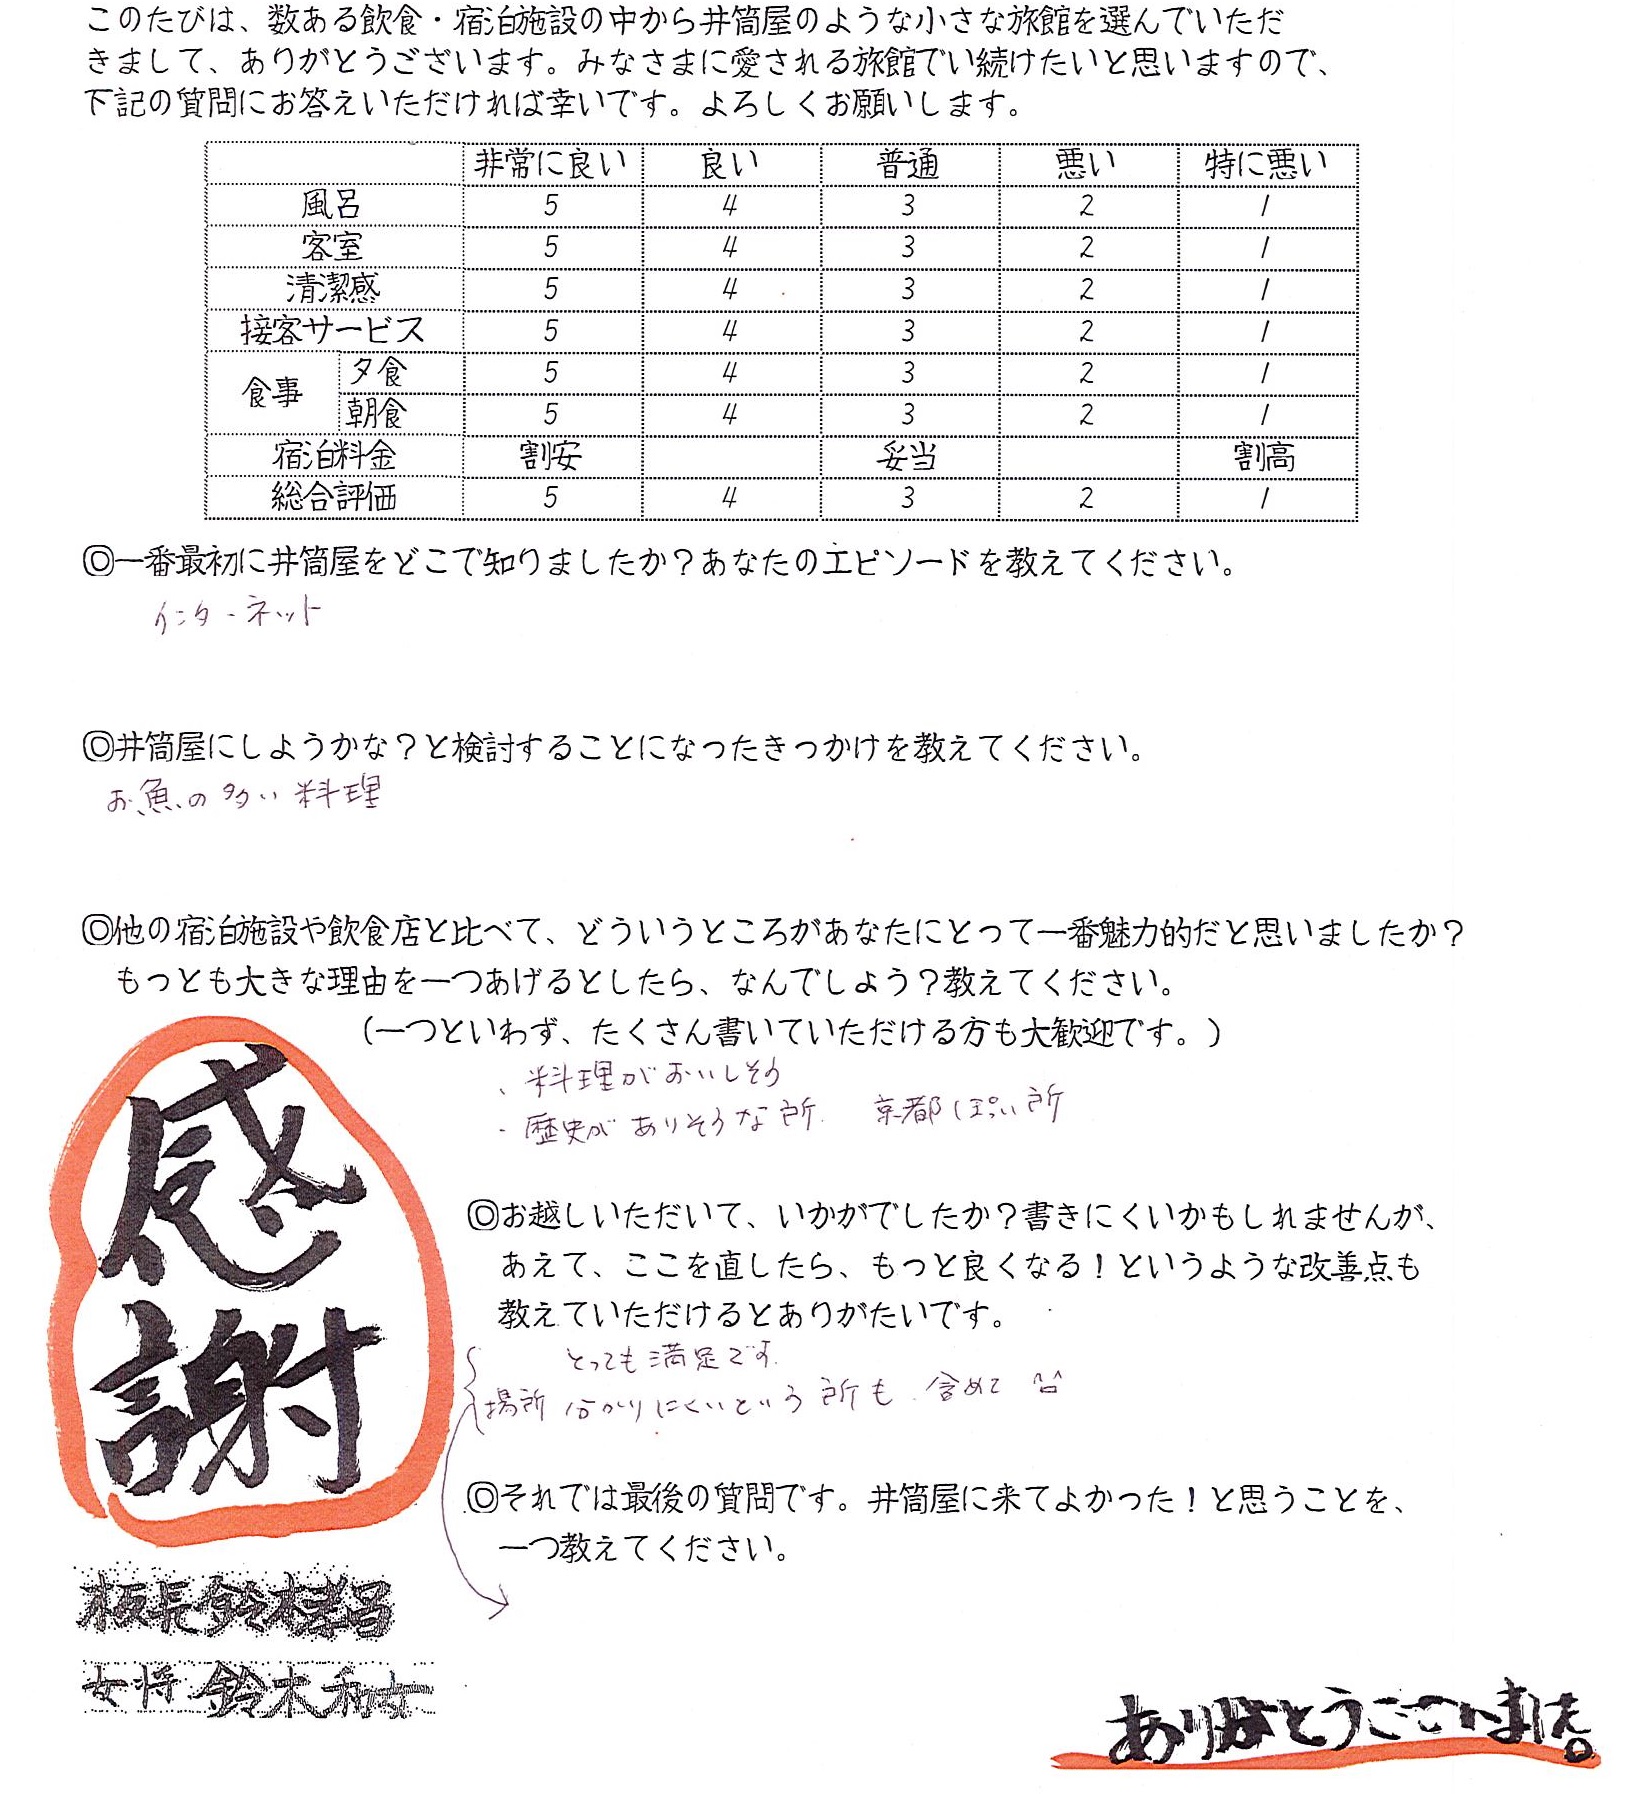 このたびは、数ある飲食・宿泊施設の中から井筒屋のような小さな旅館を選んでいただ
きまして、ありがとうございます。みなさまに愛される旅館でい続けたいと思いますので、
下記の質問にお答えいただければ幸いです。よろしくお願いします。
非常に良い 良い 普通 悪い 特に悪い
風呂 5 4 3 2 1
客室 5 4 3 2 1
清潔感 5 4 3 2 1
接客サービス 5 4 3 2 1
食事 夕食 5 4 3 2 1
朝食 5 4 3 2 1
宿泊料金 割安 妥当 割高
総合評価 5 4 3 2 1
◎一番最初に井筒屋をどこで知りましたか？あなたのエピソードを教えてください。
インターネット
◎井筒屋にしようかな？と検討することになったきっかけを教えてください。
お魚の多い料理
◎他の宿泊施設や飲食店と比べて、どういうところがあなたにとって一番魅力的だと思いましたか？
もっとも大きな理由を一つあげるとしたら、なんでしょう？教えてください。
（一つといわず、たくさん書いていただける方も大歓迎です。）
・料理がおいしそう
・歴史がありそうな所 京都っぽい所
◎お越しいただいて、いかがでしたか？書きにくいかもしれませんが、
あえて、ここを直したら、もっと良くなる！というような改善点も
教えていただけるとありがたいです。
とっても満足です
場所分かりにくいという所も含めて ^^
◎それでは最後の質問です。井筒屋に来てよかった！と思うことを、
一つ教えてください。
感謝
板長 鈴木
女将 鈴木和女
ありがとうございました。